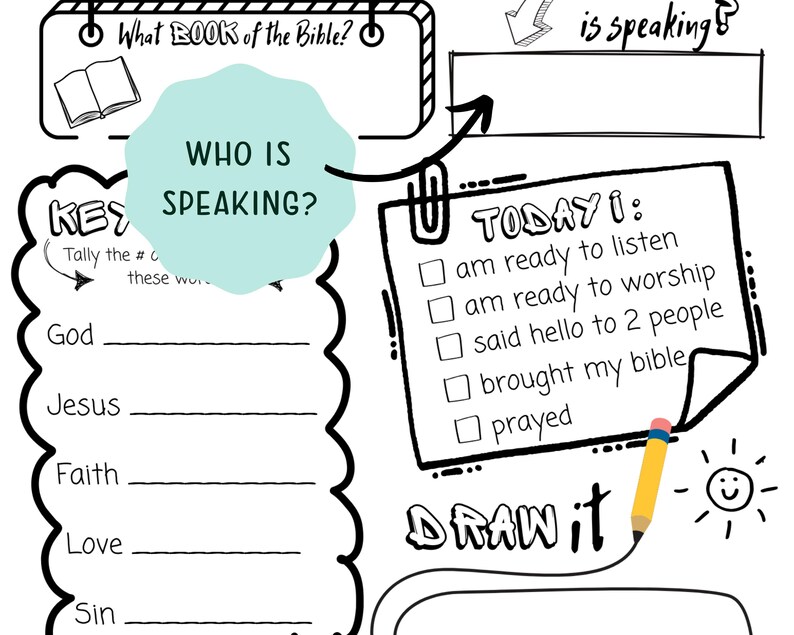 What BOOK of the Bible?
is speaking?
WHO IS
SPEAKING?
KEY
Tally the #
these
TODAY i:
am ready to listen
am ready to worship
said hello to 2 people
brought my bible
prayed
God
Jesus
Faith
Love
Sin
DRAW it